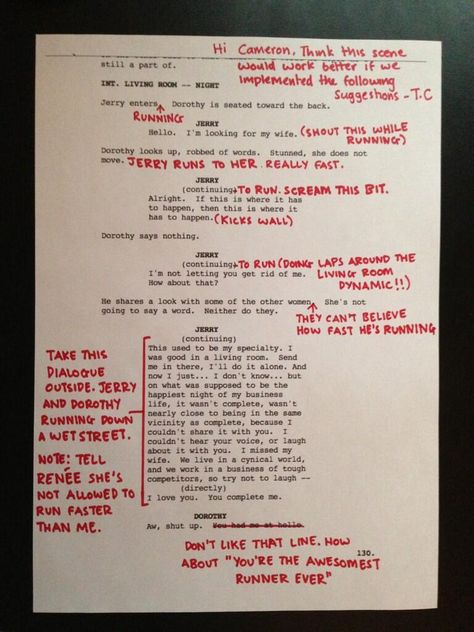 Hi Cameron, Think this scene
would work better if we
implemented the following
suggestions - T.C
still a part of.
INT. LIVING ROOM -- NIGHT
Jerry enters. Dorothy is seated toward the back.
RUNNING
JERRY
Hello. I'm looking for my wife. (SHOUT THIS WHILE
RUNNING)
Dorothy looks up, robbed of words. Stunned, she does not
move. JERRY RUNS TO HER REALLY FAST.
JERRY
(continuing) TO RUN. SCREAM THIS BIT.
Alright. If this is where it has
to happen, then this is where it
has to happen. (KICKS WALL)
Dorothy says nothing.
JERRY
(continuing) TO RUN (DOING LAPS AROUND THE
I'm not letting you get rid of me. LIVING ROOM
How about that? DYNAMIC!!)
He shares a look with some of the other women. She's not
going to say a word. Neither do they.
THEY CAN'T BELIEVE
HOW FAST HE'S RUNNING
JERRY
(continuing)
This used to be my specialty. I
was good in a living room. Send
me in there, I'll do it alone. And
now I just... I don't know... but
on what was supposed to be the
happiest night of my business
life, it wasn't complete, wasn't
nearly close to being in the same
vicinity as complete, because I
couldn't share it with you. I
couldn't hear your voice, or laugh
about it with you. I missed my
wife. We live in a cynical world,
and we work in a business of tough
competitors, so try not to laugh --
(directly)
I love you. You complete me.
TAKE THIS
DIALOGUE
OUTSIDE. JERRY
AND DOROTHY
RUNNING DOWN
A WET STREET.
NOTE: TELL
RENÉE SHE'S
NOT ALLOWED TO
RUN FASTER
THAN ME.
DOROTHY
Aw, shut up. You had me at hello.
DON'T LIKE THAT LINE. HOW
ABOUT "YOU'RE THE AWESOMEST
RUNNER EVER"
130.